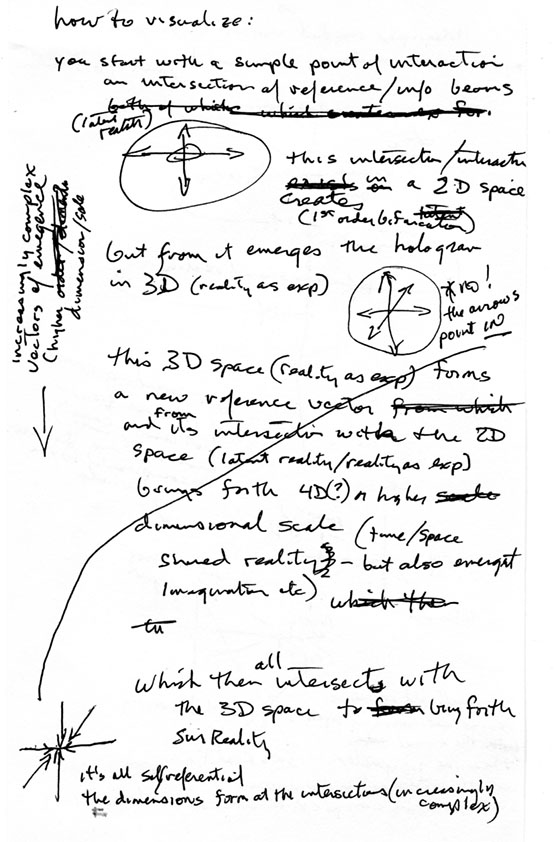 how to visualize:
you start with a simple point of interaction
an intersection of reference/info beams
both of which which creates for
(latent
reality)
this intersection/interaction
exists in on a 2D space
creates
(1st order bifurcation)
but from it emerges the hologram
in 3D (reality as exp)
* no!
the arrows
point IN
increasingly complex
vectors of emergence
(higher order/
dimension/scale
this 3D space (reality as exp) forms
a new reference vector from which
and from its intersection with the 2D
space (latent reality/reality as exp)
brings forth 4D(?) or higher
dimensional scale (time/space
shared reality - but also emergent
imagination etc) which then
which then all intersects with
the 3D space to form bring forth
Reality
it's all selfreferential
the dimensions form at the intersections (increasingly
complex)